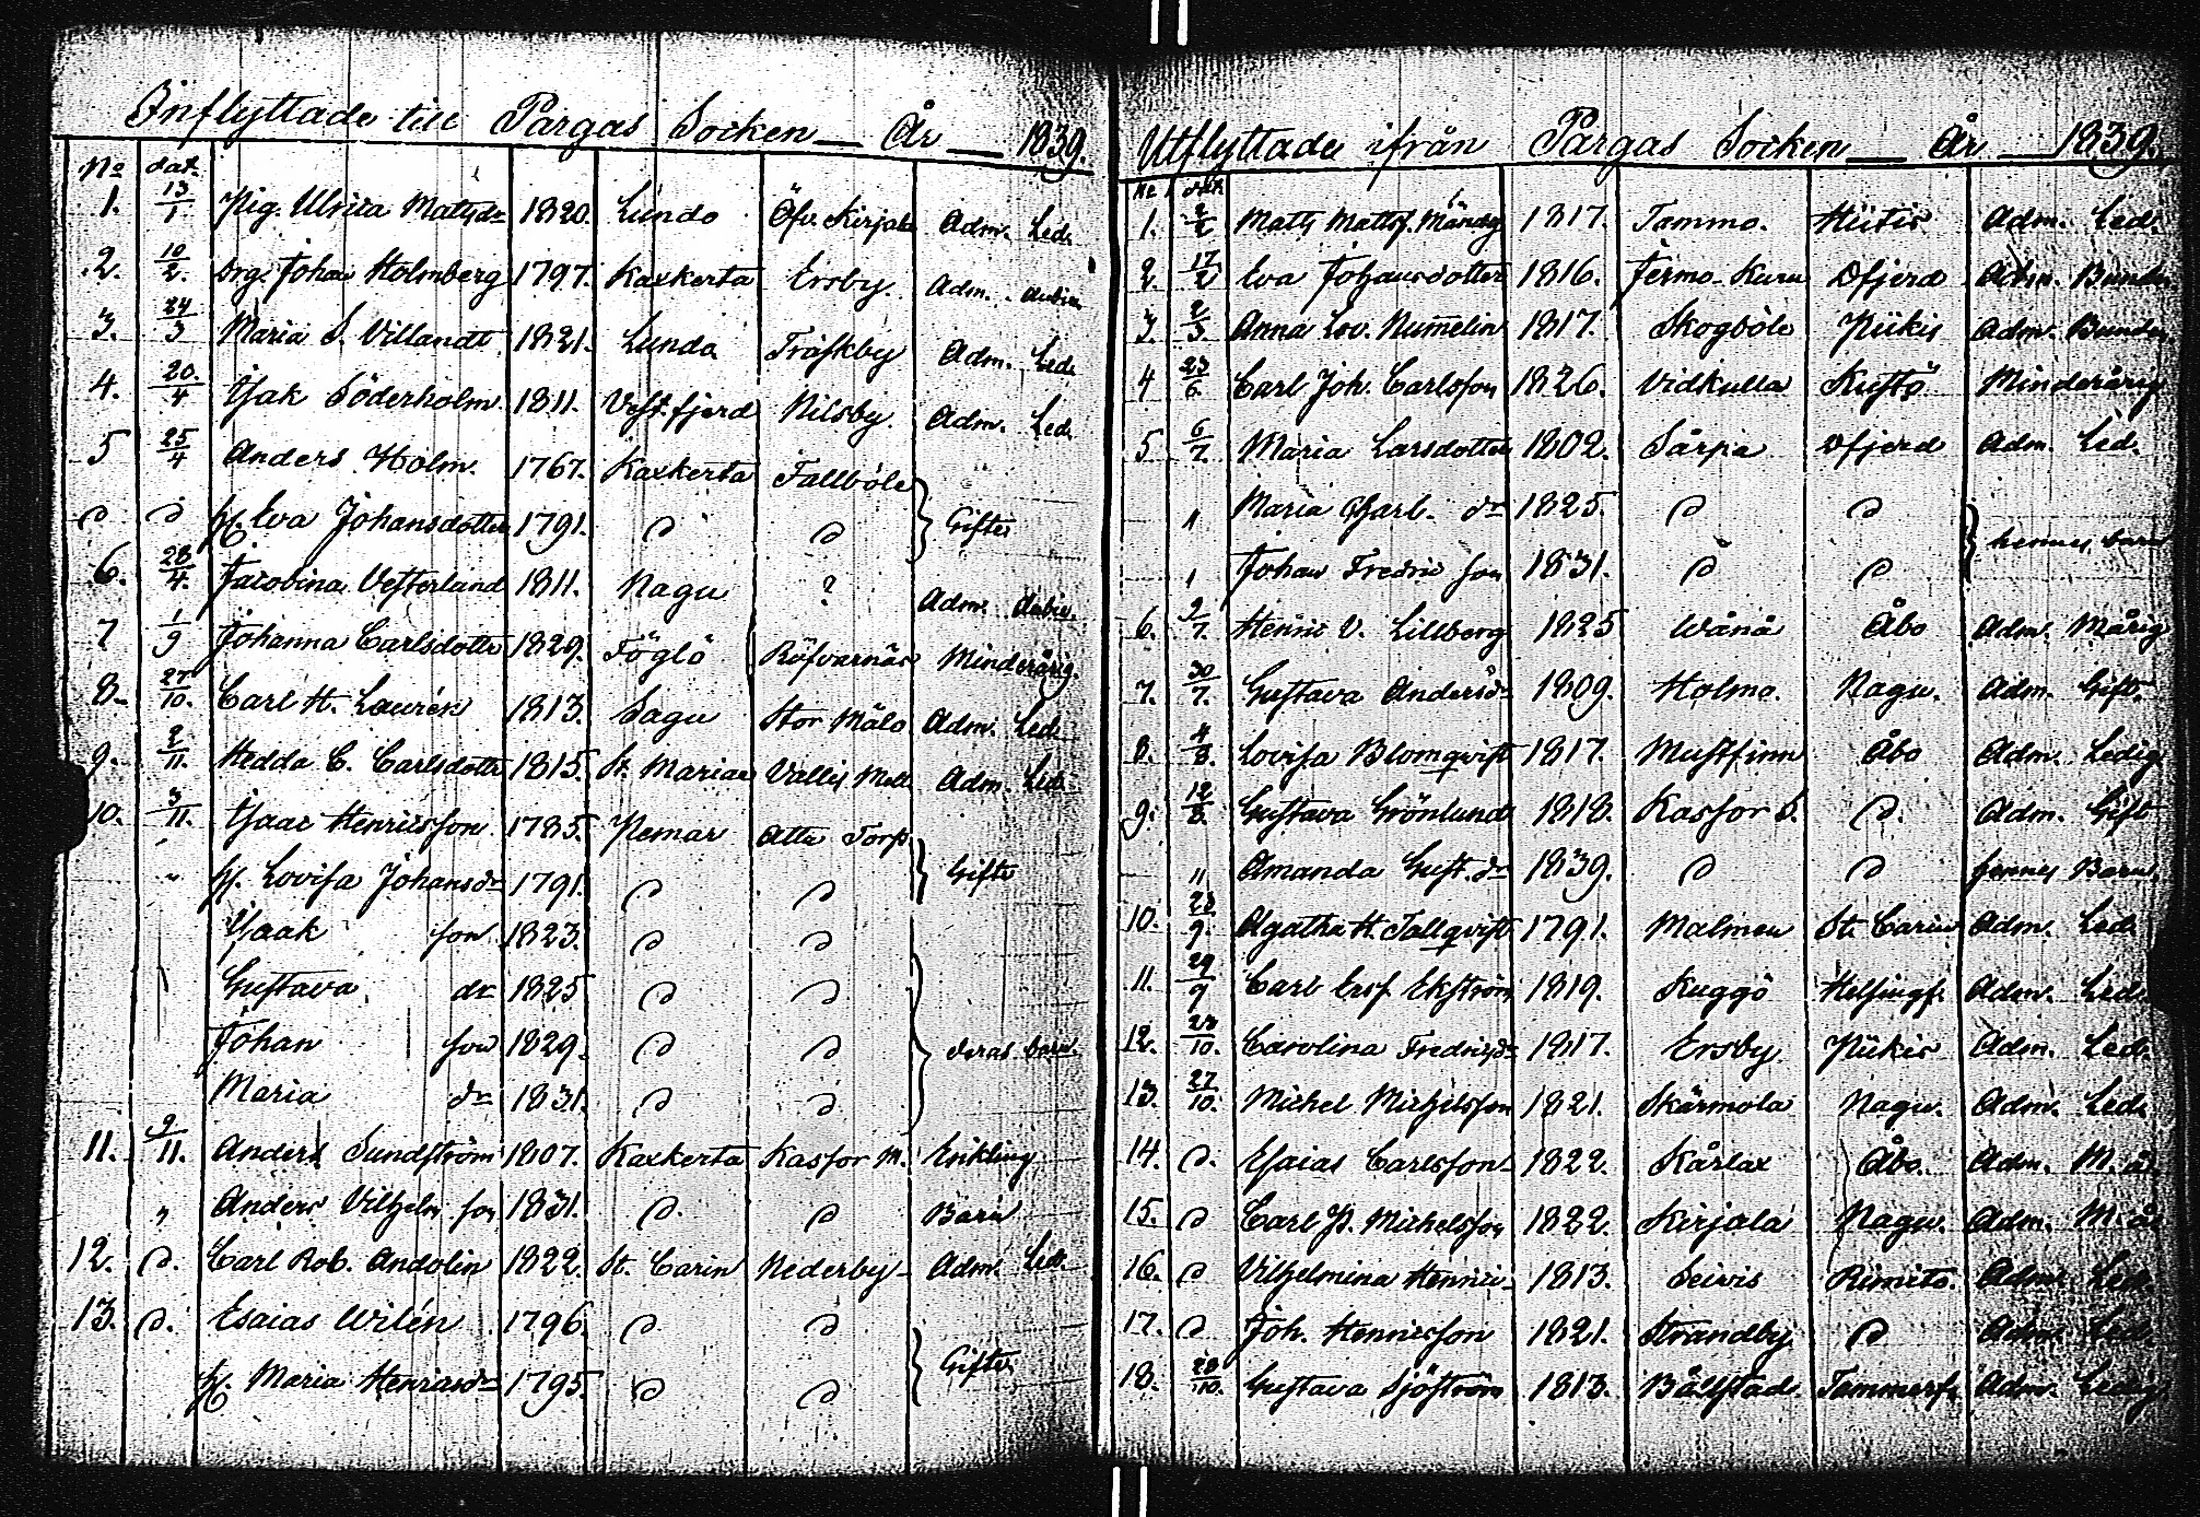 Inflyttade till Pargas Socken — År — 1839.
No dat.
1. 13/1 Pig. Ulrica Matsdr 1820. Lundo Öfv. Kirjala Adm. Led.
2. 10/2. Drg. Johan Holmberg 1797. Kaxkerta Ersby. Adm.
3. 24/3 Maria S. Villandt 1821. Lundo Träskby Adm. Led.
4. 20./4 Isak Söderholm. 1811. Vestfjerd Nilsby. Adm. Led.
5 25/4 Anders Holm. 1767. Kaxkerta Fallböle
d d h. Eva Johansdotter 1791. d d } Gifter
6. 28/4. Jacobina Vesterlund 1811. Nagu ? Adm.
7 1/9 Johanna Carlsdotter 1829. Föglö Röfvarnäs Minderårig.
8. 27/10. Carl H. Laurén 1813. Sagu Stor Mälo Adm. Led.
9. 2/11. Hedda C. Carlsdotter 1815. St. Mariae Vallis Adm. Led.
10. 3/11. Isaac Henricsson 1785. Pemar Atta Torp
" h. Lovisa Johansdr 1791. d d } Gifte
Isaak son 1823. d d
Gustava dr 1825 d d
Johan son 1829. d d } deras barn
Maria dr 1831. d d
11. 9/11. Anders Sundström 1807. Kaxkerta Kassor M. Enkling
" Anders Vilhelm son 1831. d. d Barn
12. d. Carl Rob. Andolin 1822. St. Carin Nederby Adm. Led.
13. d. Esaias Wilén 1796. d. d
h. Maria Henricsdr 1795. d d } Gifter
Utflyttade ifrån Pargas Socken — År — 1839.
No dat
1. 2/2 Matts Mattss. 1817. Tammo. Hitis Adm. Led.
2. 17/2 Eva Johansdotter 1816. Jermo Kuru Vfjerd Adm. Bunden
3. 2/3 Anna Lov. Numelin 1817. Skogböle Piikis Adm. Bunden
4 23/6. Carl Joh. Carlsson 1826. Vidkulla Kustö Minderårig
5 6/7. Maria Larsdotter 1802. Särpa Vfjerd Adm. Led.
1 Maria Charl. dr 1825. d d
1 Johan Fredric son 1831. d d } hennes barn
6. 9/7. Henric V. Lillberg 1825 Wånå Åbo Adm. Mårig
7. 30/7. Gustava Andersdr 1809. Holmo. Nagu. Adm. Gift.
8. 4/8. Lovisa Blomqvist 1817. Mustfinn Åbo Adm. Ledig
9. 12/8. Gustava Grönlund 1818. Kassor S. d. Adm. Gift
11 Amanda Gust. dr 1839. d d hennes Barn.
10. 23./9. Agatha H. Tallqvist 1791. Malmen St. Carin Adm. Led.
11. 29/9 Carl Ekström 1819. Kuggö Helsingf. Adm. Led.
12. 27/10. Carolina Fredricsdr 1817. Ersby. Piikis Adm. Led.
13. 27/10. Michel Michelsson 1821. Skärmola Nagu. Adm. Led.
14. d. Esaias Carlsson 1822. Kårlax Åbo. Adm. M. å.
15. d Carl Michelsson 1822. Kirjala Nagu. Adm. M. å.
16. d Vilhelmina Henric- 1813. Seivis Rimito. Adm. Led.
17. d Joh. Henricsson 1821. Strandby. d Adm. Led.
18. 28/10. Gustava Sjöström 1813. Bålstad Tammerfs Adm. Ledig